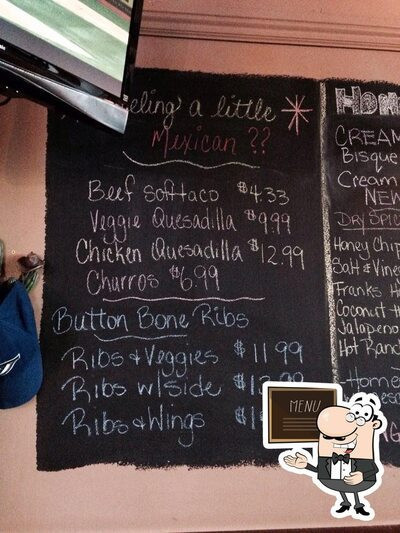 eling a little
Mexican ??
Beef softtaco $4.33
Veggie Quesadilla $9.99
Chicken Quesadilla $12.99
Churros $6.99
Button Bone Ribs
Ribs & Veggies $11.99
Ribs w/side
Ribs & Wings
CREAM
Bisque
Cream
NEW
DRY SPIC
Honey Chip
Salt & Vines
Franks H
Coconut th
Jalapeno
Hot Ranc
Home
MENU